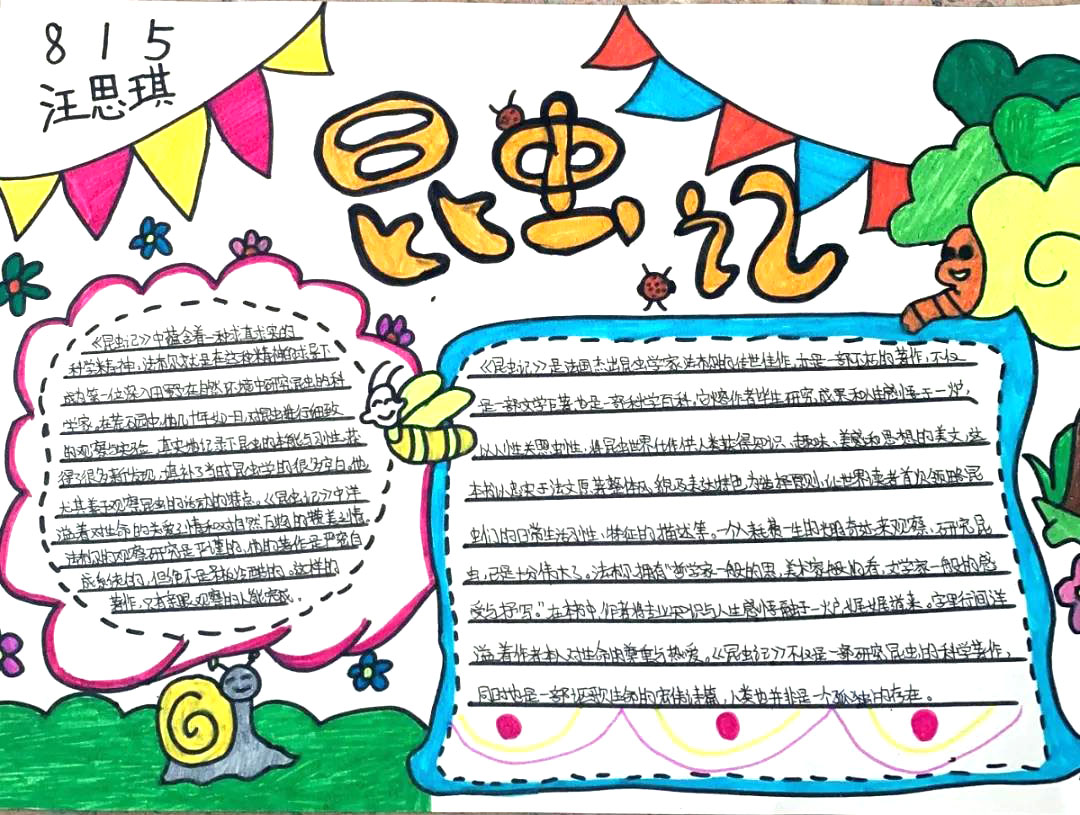 815
汪思琪
昆虫记
《昆虫记》中蕴含着一种求真求实的
科学精神,法布尔也是在这种精神的指导下
成为第一位深入田野在自然环境中研究昆虫的科
学家。在荒石园中,他几十年如一日,对昆虫进行细致
的观察与实验,真实地记录下昆虫的本能与习性,获
得了很多新发现,填补了当时昆虫学的很多空白。他
尤其善于观察昆虫的活动的特点。《昆虫记》中洋
溢着对生命的关爱之情和对自然万物的赞美之情。
法布尔的观察研究是严谨的,他的著作是严密自
成系统的,但绝不是
这样的
著作,
观察的人能完成。
《昆虫记》是法国杰出昆虫学家法布尔的传世佳作,亦是一部不朽的著作,不仅
是一部文学巨著也是一部科学百科,它熔作者毕生研究,成果和人生感悟于一炉,
以人性关照虫性,将昆虫世界化作供人类获得知识、趣味、美感和思想的美文,这
本书以忠实于法文原著整体风貌及表达特色为选择原则,让世界读者首次领略昆
虫们的日常生活习性、特征的描述等。一个人耗费一生的光阴来观察、研究昆
虫,已是十分伟大了。法布尔拥有"哲学家一般的思,美术家般的看,文学家一般的感
受与抒写。"在本书中,作者将专业知识与人生感悟融于一炉,娓娓道来。字里行间洋
溢着作者本人对生命的尊重与热爱。《昆虫记》不仅是一部研究昆虫的科学著作,
同时也是一部讴歌生命的宏伟诗篇,人类也并非是一个孤独的存在。